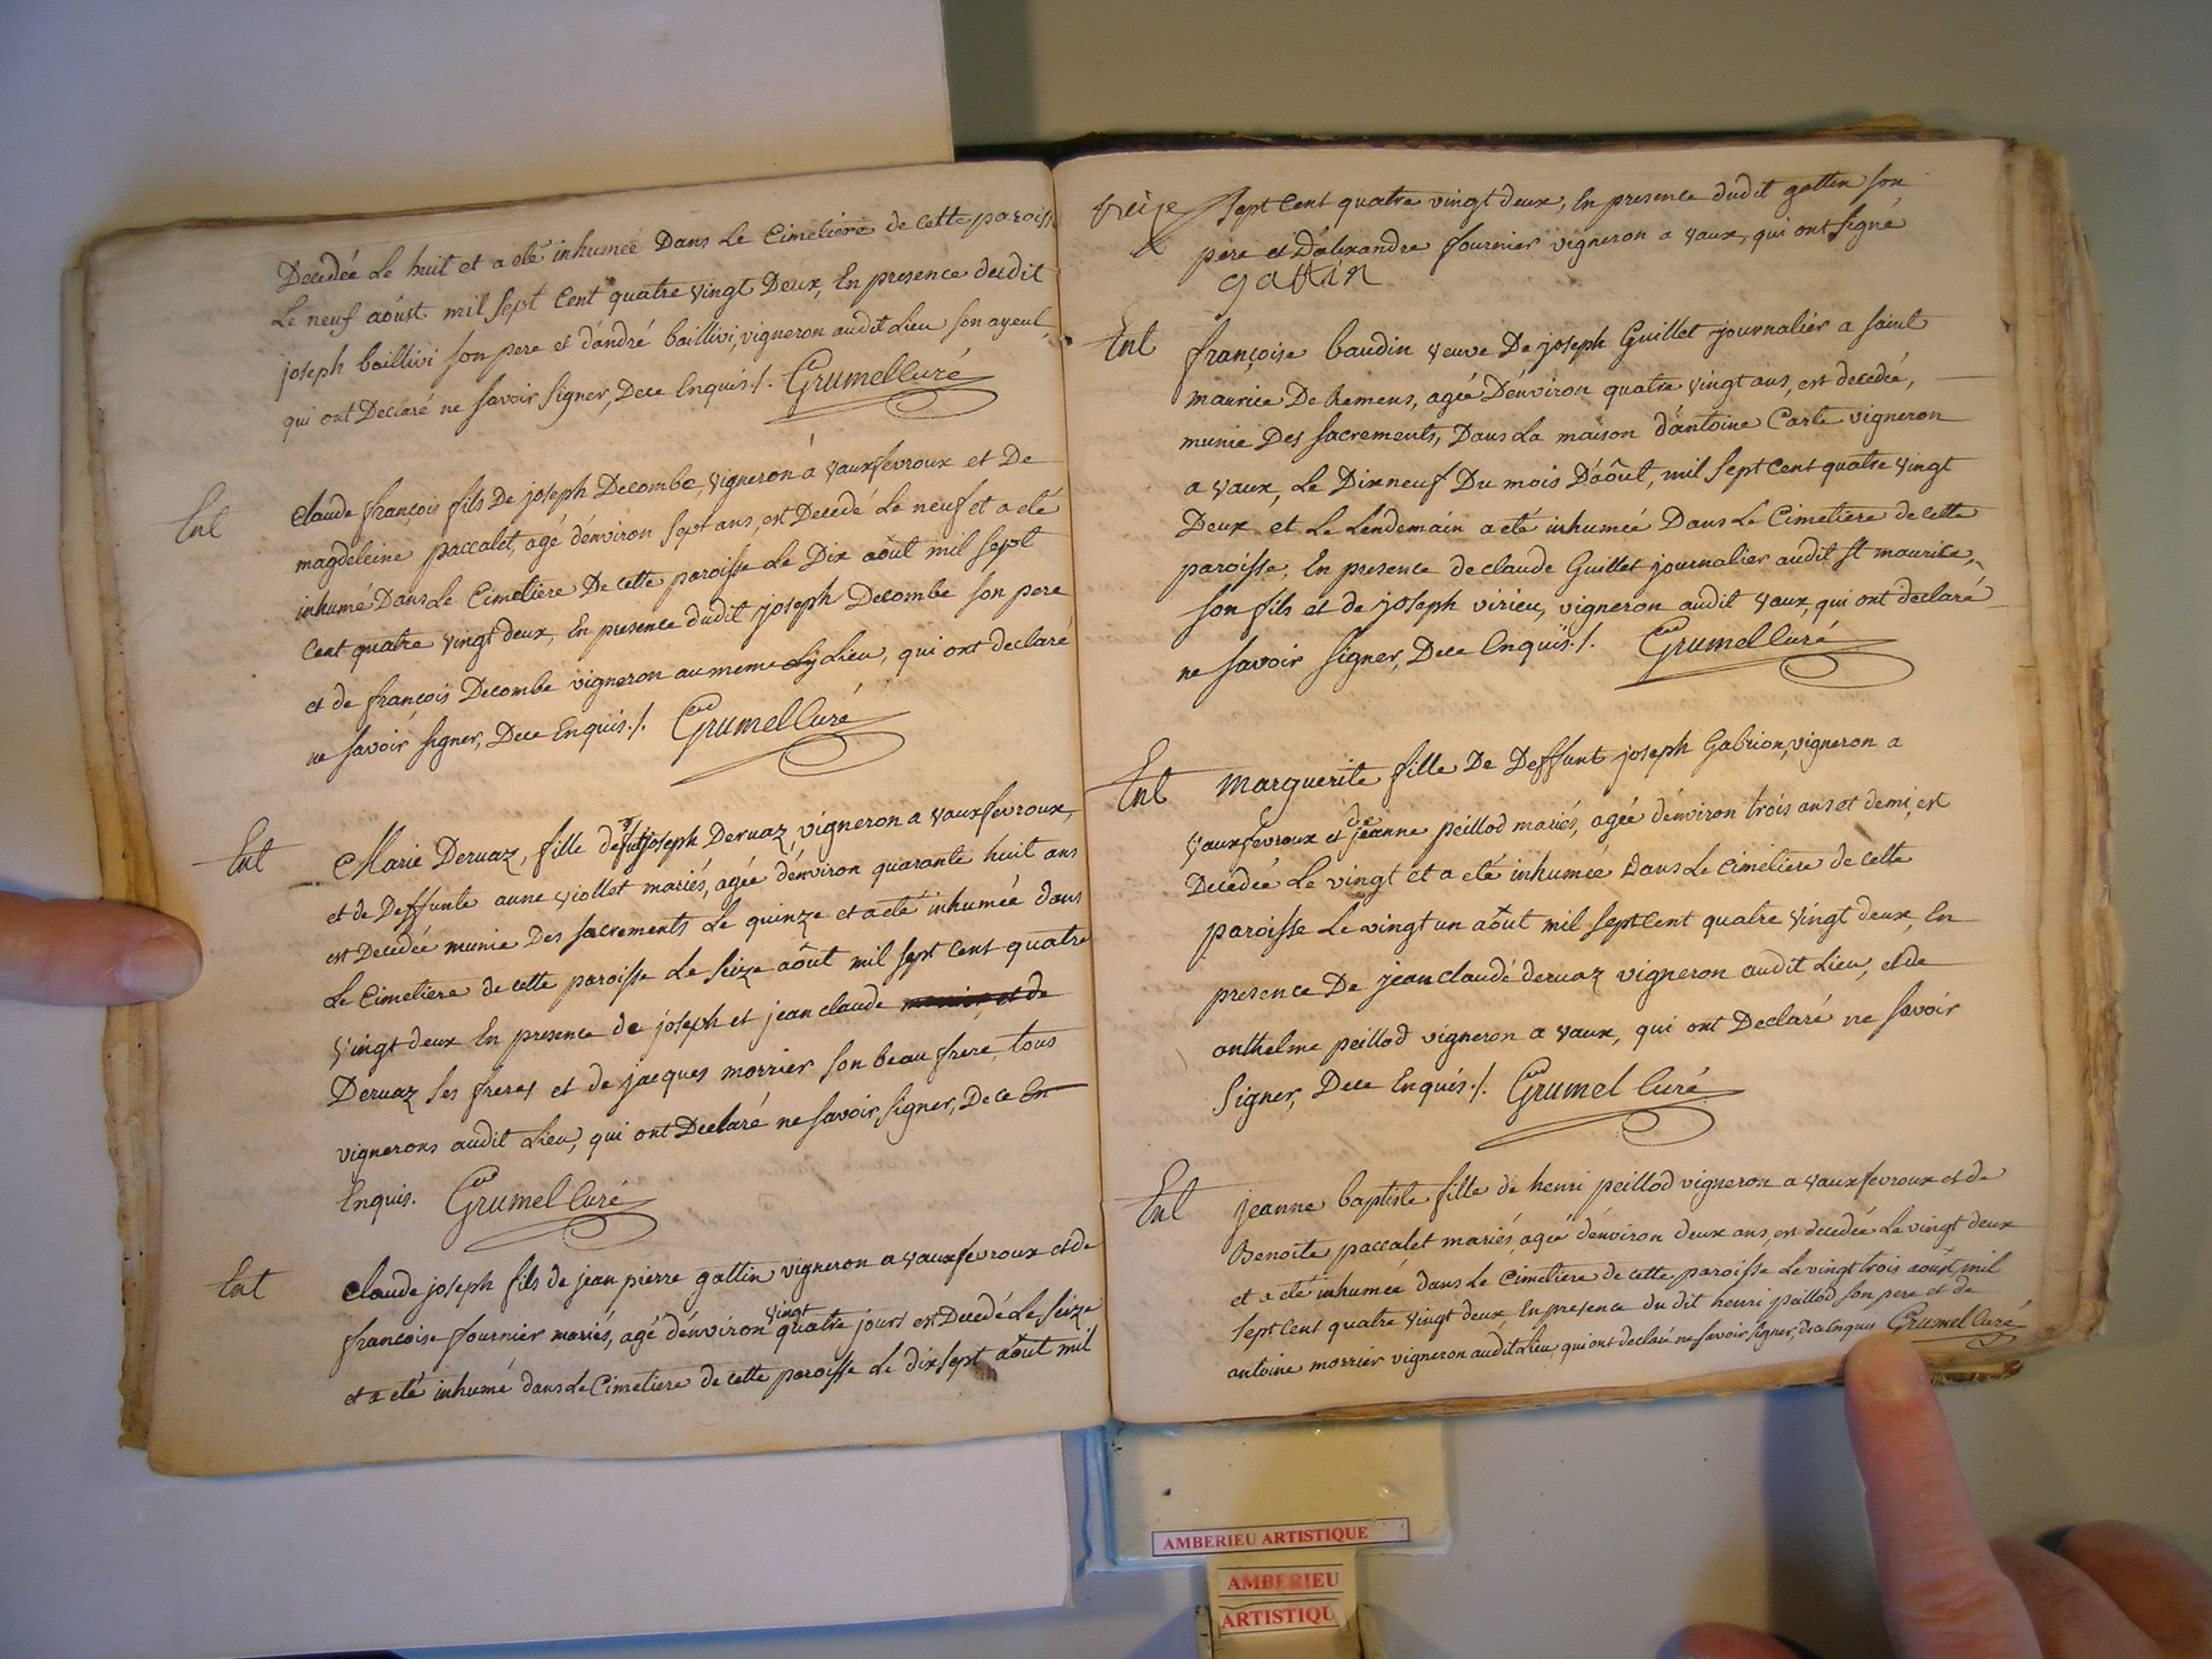 Decedée Le huit et a eté inhumée Dans Le Cimetiere de cette paroisse
Le neuf aôust mil sept Cent quatre vingt Deux, En presence dudit
joseph baillivi son pere et d'andré baillivi, vigneron audit Lieu son ayeul,
qui ont Declaré ne savoir signer, Dece Enquis ./. Grumel Curé
Ent
Claude françois fils De joseph Decombe, vigneron a vauxfevroux et De
magdeleine paccalet, agé d'environ sept ans, est Decedé Le neuf et a eté
inhumé Dans Le Cimetiere De cette paroisse Le Dix aôut mil sept
Cent quatre vingt deux, En presence dudit joseph Decombe son pere
et de françois Decombe vigneron au meme Lieu, qui ont declaré
ne savoir signer, Dece Enquis ./. Grumel Curé
Ent
Marie Dervaz, fille de fut joseph Dervaz, vigneron a vauxfevroux,
et de Deffunte anne viollet mariés, agée d'environ quarante huit ans
est Decedée munie Des sacrements Le quinze et a eté inhumée dans
Le Cimetiere de cette paroisse Le seize aôut mil sept Cent quatre
vingt deux En presence de joseph et jean claude
Dervaz ses freres et de jacques morrier son beau frere, tous
vignerons audit Lieu, qui ont Declaré ne savoir signer, De ce En
Enquis. Grumel Curé
Ent
Claude joseph fils de jean pierre gattin vigneron a vauxfevroux et de
francoise fournier mariés, agé d'environ vingt quatre jours est Decedé Le seize
et a eté inhumé dans Le Cimetiere de cette paroisse Le dix sept aôut mil
treize
sept Cent quatre vingt deux, En presence dudit gattin son
pere et D'alexandre fournier vigneron a vaux, qui ont signé
gattin
Ent
françoise baudin veuve De joseph Guillet journalier a saint
maurice De Remens, agée D'environ quatre vingt ans, est decedée,
munie Des sacrements, Dans La maison d'antoine Carle vigneron
a vaux, Le Dix neuf Du mois D'aôut, mil sept Cent quatre vingt
Deux et Le Lendemain a eté inhumée Dans Le Cimetiere de cette
paroisse, En presence de claude Guillet journalier audit st maurice,
son fils et de joseph virieu, vigneron audit vaux, qui ont declaré
ne savoir signer, Dece Enquis ./. Grumel Curé
Ent
Marguerite fille De Deffunt joseph Gabrion, vigneron a
vauxfevroux et de jeanne peillod mariés, agée d'environ trois ans et demi, est
Decedée Le vingt et a eté inhumée Dans Le Cimetiere de cette
paroisse Le vingt un aôut mil sept Cent quatre vingt deux, En
presence De jean claude dervaz vigneron audit Lieu, et de
anthelme peillod vigneron a vaux, qui ont Declaré ne savoir
signer, Dece Enquis ./. Grumel Curé
Ent
jeanne baptiste fille de henri peillod vigneron a vauxfevroux et de
Benoite paccalet mariés, agée d'environ deux ans, est decedée Le vingt deux
et a eté inhumée dans Le Cimetiere de cette paroisse Le vingt trois aôust mil
sept Cent quatre vingt deux, En presence du dit henri peillod son pere et de
antoine morrier vigneron audit Lieu, qui ont declaré ne savoir signer, dece enquis Grumel Curé
AMBERIEU ARTISTIQUE
AMBERIEU
ARTISTIQU